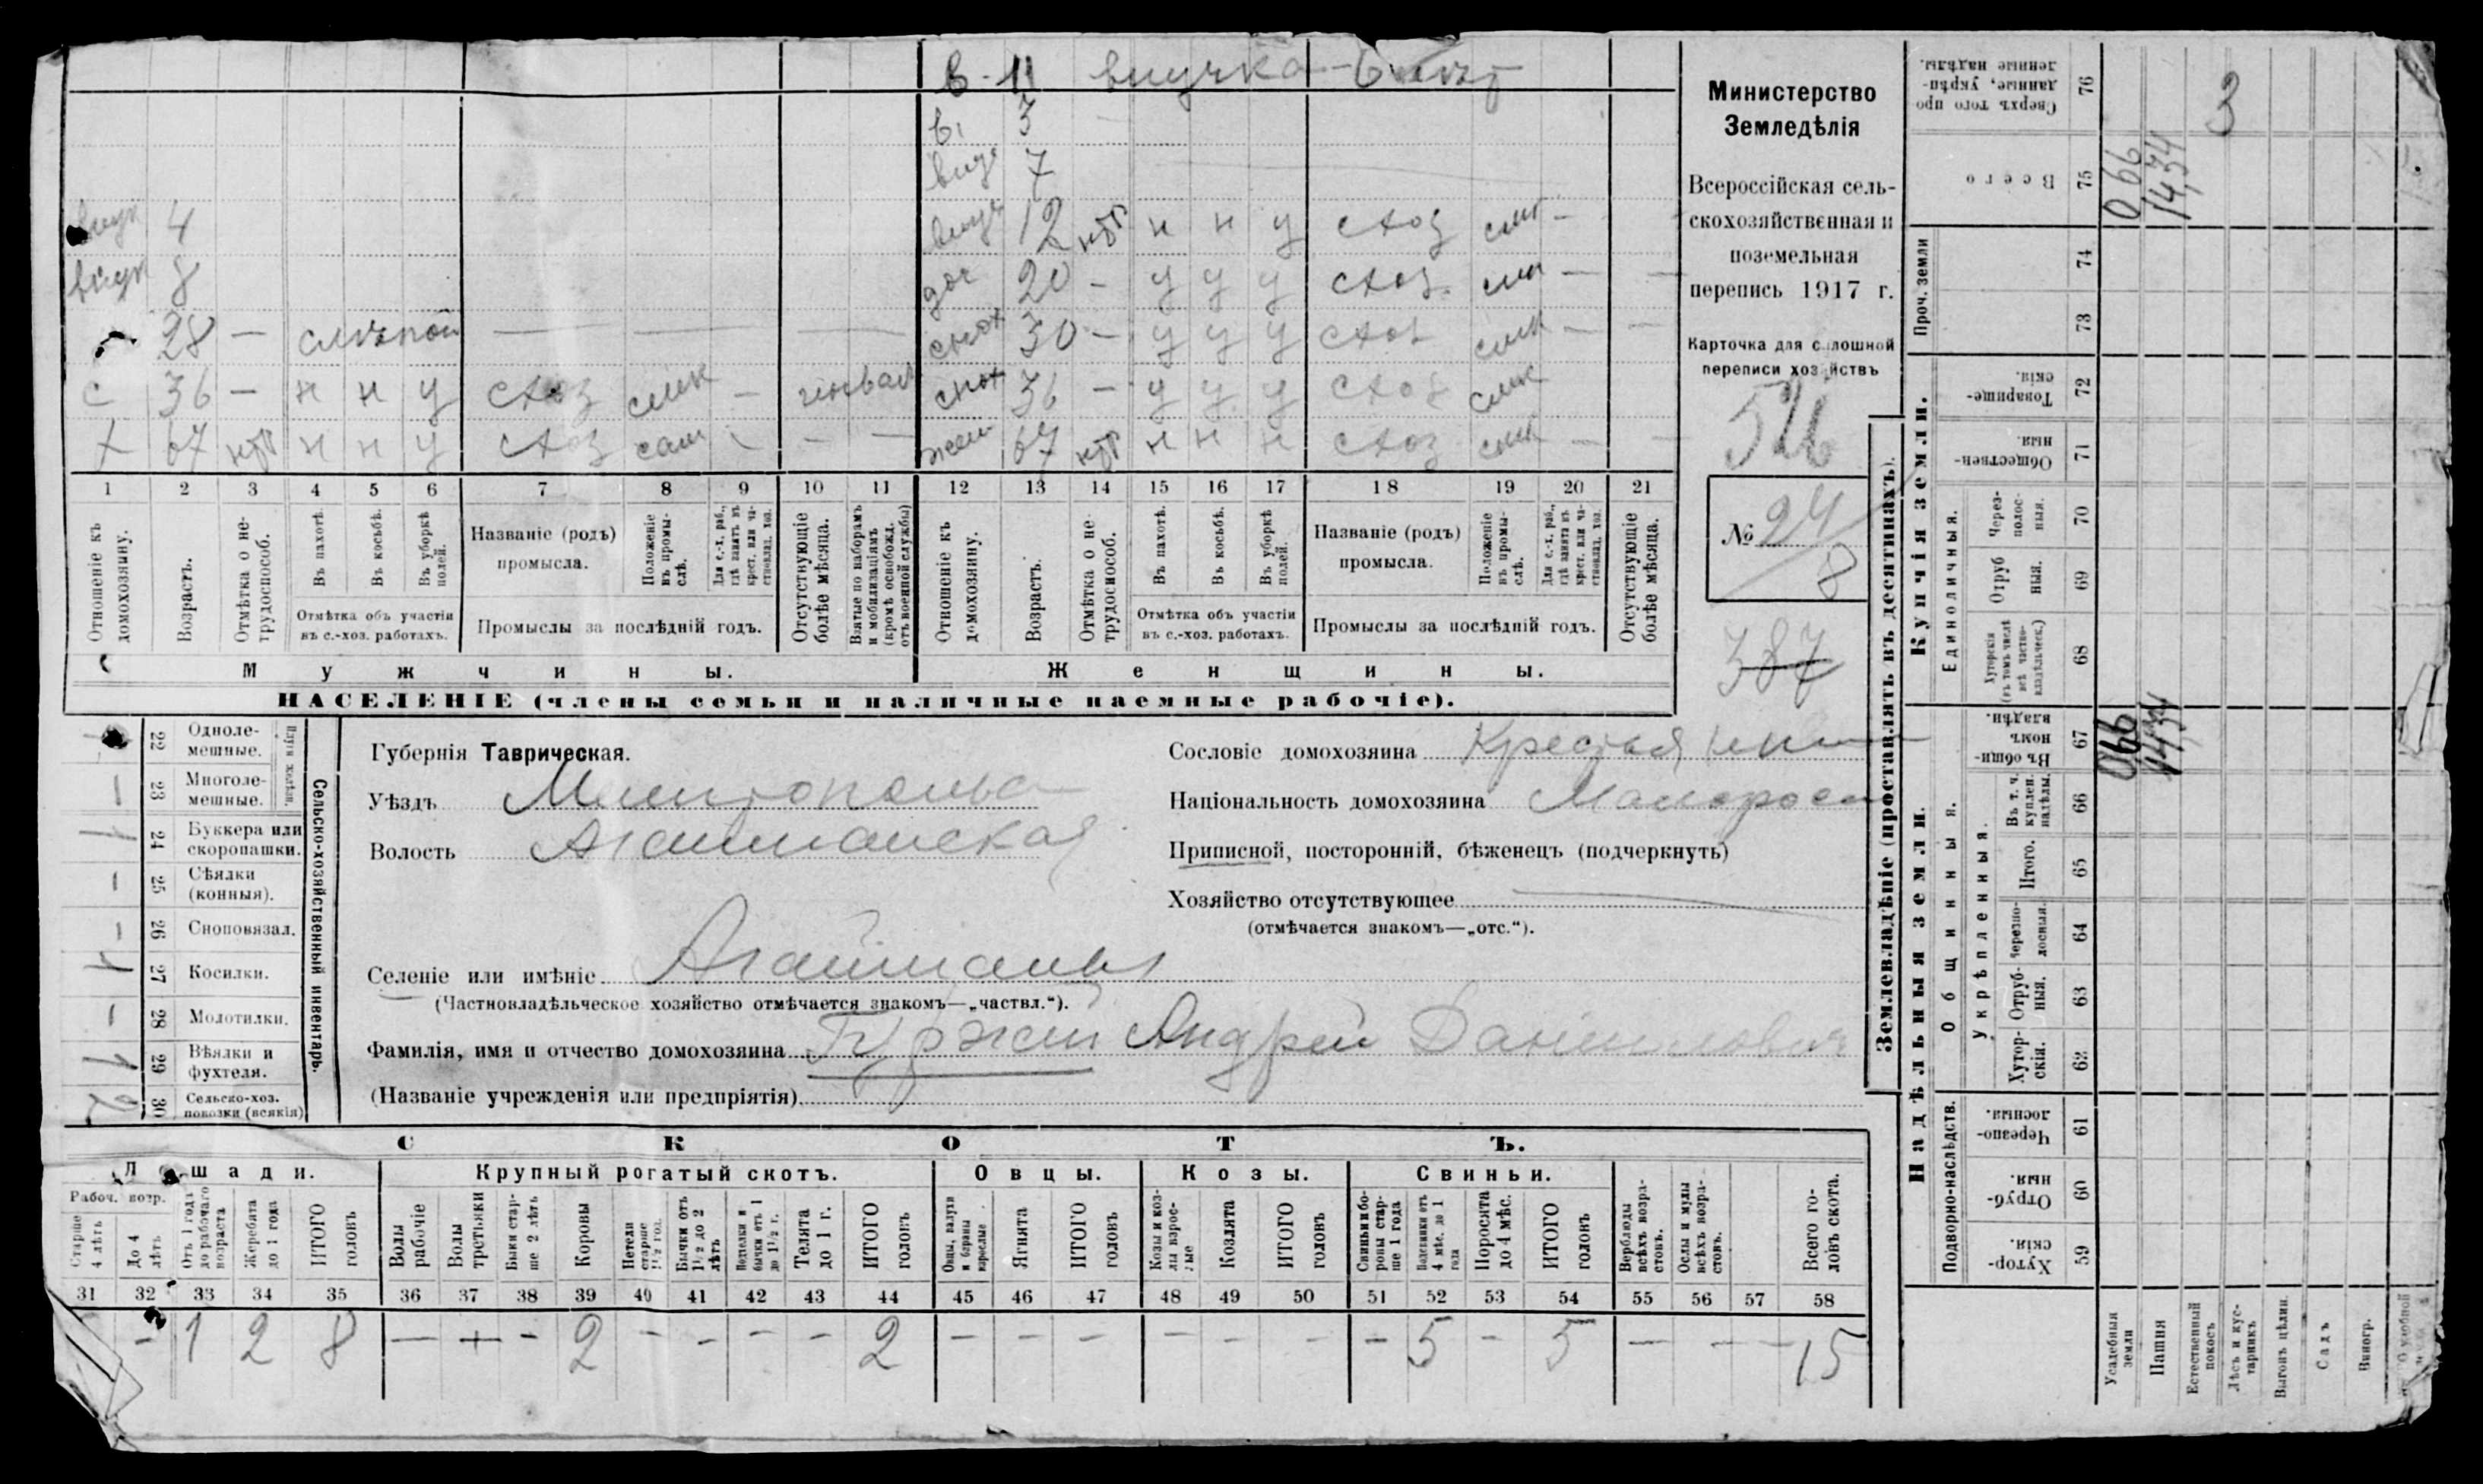 в - 11 внучка - 6 лет
в. 3
внуч 7
внук 4 внуч 12 нтр н н у схоз смк -
внук 8 доч 20 - у у у схоз смк - -
28 - слѣпой - - - снох 30 - у у у схоз смк - -
с 36 - н н у схоз смк - снох 36 - у у у схоз смк
х 67 нтр н н у схоз сам - - - жен 67 нтр н н н схоз смк - -
1 2 3 4 5 6 7 8 9 10 11 12 13 14 15 16 17 18 19 20 21
Отношеніе къ домохозяину.
Возрастъ.
Отмѣтка о не-трудоспособ.
Въ пахотѣ.
Въ косьбѣ.
Въ уборкѣ полей.
Отмѣтка объ участіи
въ с.-хоз. работахъ.
Названіе (родъ)
промысла.
Положеніе въ промы-слѣ.
Для с.-х. раб., гдѣ занятъ въ крест. или ча-стновлад. хоз.
Промыслы за послѣдній годъ.
Отсутствующіе болѣе мѣсяца.
Взятые по наборамъ и мобилизаціямъ (кромѣ освобожд. отъ военной службы)
Отношеніе къ домохозяину.
Возрастъ.
Отмѣтка о не-трудоспособ.
Въ пахотѣ.
Въ косьбѣ.
Въ уборкѣ полей.
Отмѣтка объ участіи
въ с.-хоз. работахъ.
Названіе (родъ)
промысла.
Положеніе въ промы-слѣ.
Для с.-х. раб., гдѣ занята въ крест. или ча-стновлад. хоз.
Промыслы за послѣдній годъ.
Отсутствующіе болѣе мѣсяца.
Мужчины. Женщины.
НАСЕЛЕНІЕ (члены семьи и наличные наемные рабочіе).
Министерство
Земледѣлія
Всероссійская сель-
скохозяйственная и
поземельная
перепись 1917 г.
Карточка для сплошной
переписи хозяйствъ
№ 24
8
387
Плуги желѣзн.
22 Одноле-мешные.
23 Многоле-мешные. -
24 Буккера или скоропашки. 1
25 Сѣялки (конныя). -
26 Сноповязал. -
27 Косилки. 1
28 Молотилки. -
29 Вѣялки и фухтеля. 1
30 Сельско-хоз. повозки (всякія) 2
Сельско-хозяйственный инвентарь.
Губернія Таврическая.
Уѣздъ Мелитопольс
Волость Агайманская
Селеніе или имѣніе Агайманы
(Частновладѣльческое хозяйство отмѣчается знакомъ—„частвл.“).
Фамилія, имя и отчество домохозяина Андрей Даниилович
(Названіе учрежденія или предпріятія)
Сословіе домохозяина Крестьянин
Національность домохозяина Малорос
Приписной, посторонній, бѣженецъ (подчеркнуть)
Хозяйство отсутствующее
(отмѣчается знакомъ—„отс.“).
СКОТЪ.
Лошади. Крупный рогатый скотъ. Овцы. Козы. Свиньи.
Рабоч. возр.
Старше 4 лѣтъ
До 4 лѣтъ
Отъ 1 года до рабочаго возраста
Жеребята до 1 года
ИТОГО головъ
Волы рабочіе
Волы третьяки
Быки стар-ше 2 лѣтъ
Коровы
Нетели старше 1 1/2 год.
Бычки отъ 1 1/2 до 2 лѣтъ
Подтелки и бычки отъ 1 до 1 1/2 г.
Телята до 1 г.
ИТОГО головъ
Овцы, валухи и бараны взрослые
Ягнята
ИТОГО головъ
Козы и коз-лы взрос-лые
Козлята
ИТОГО головъ
Свиньи и бо-ровы стар-ше 1 года
Подсвинки отъ 4 мѣс. до 1 года
Поросята до 4 мѣс.
ИТОГО головъ
Верблюды всѣхъ возра-стовъ.
Ослы и мулы всѣхъ возра-стовъ.
Всего го-ловъ скота.
31 32 33 34 35 36 37 38 39 40 41 42 43 44 45 46 47 48 49 50 51 52 53 54 55 56 57 58
- 1 2 8 - + - 2 - - - - 2 - - - - - - - 5 - 5 - - - 15
Землевладѣніе (проставлять въ десятинахъ).
Сверхъ того про-данные, укрѣп-ленные надѣлы. 76 3
Всего 75 0,66 14,34
Проч. земли
74
73
Купчія земли.
Товарище-скія. 72
Обществен-ныя. 71
Единоличныя.
Через-полос-ныя. 70
Отруб ныя. 69
Хуторскія (въ томъ числѣ всѣ частно-владѣльческ.) 68
Надѣльныя земли.
Общинныя.
Въ общин-номъ владѣн. 67 0,66 14,34
Въ т. ч. куплен. надѣлы. 66
Укрѣпленныя.
Итого. 65
Черезпо-лосныя. 64
Отруб-ныя. 63
Хутор-скія. 62
Подворно-наслѣдств.
Черезпо-лосныя. 61
Отруб-ныя. 60
Хутор-скія. 59
Усадебныя земли
Пашня
Естественный покосъ
Лѣсъ и кус-тарникъ
Выгонъ цѣлин.
Садъ
Виногр.